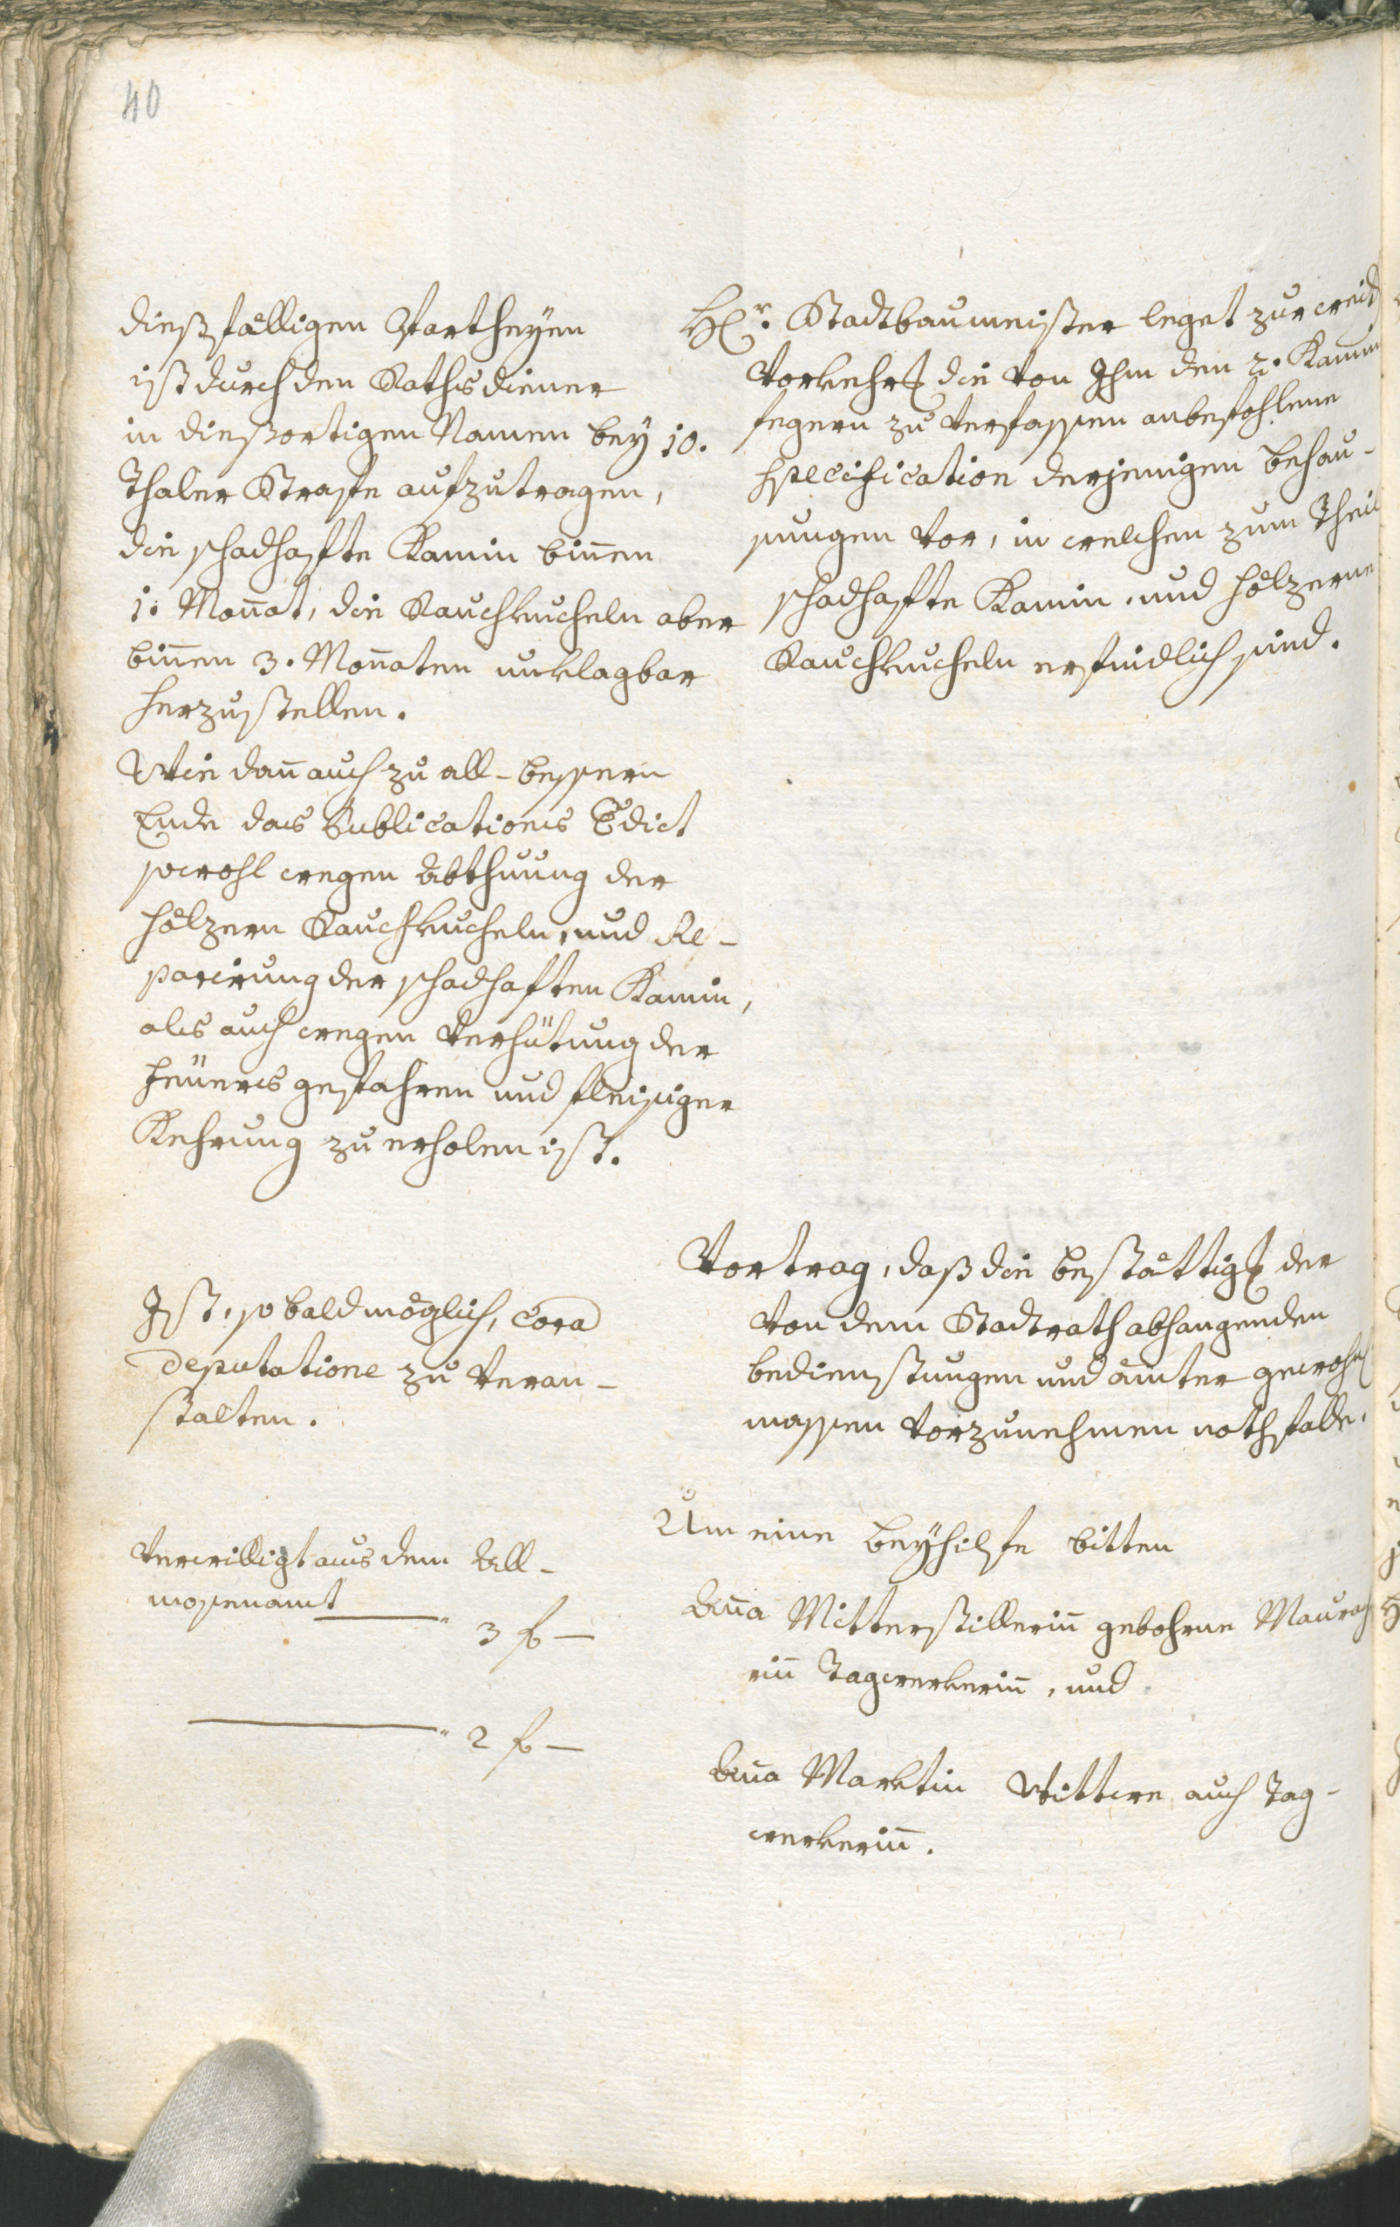 40
dießfälligen Partheyen
ist durch den Rathsdiener
in dießortigen Namen bey 10.
Thaler Straffe aufzutragen,
die schadhaffte Kamin biñen
1. Moñat, die Rauchkucheln aber
biñen 3. Moñaten unklagbar
herzustellen.
Wie dañ auch zu all-bessern
Ende das Publications Edict
sowohl wegen Abthuung der
hölzern Rauchkucheln, und Re-
parirung der schadhaften Kamin,
als auch wegen Verhütung der
Feüersgefahren und fleissiger
Kehrung zu erholen ist.
Hr. Stadtbaumeister leget zur weit
Vorkehrg die von Ihm den 2. Kamin
fegern zu verfassen anbefohlene
Specification derjenigen Behau-
sungen vor, in welchen zum Theil
schadhaffte Kamin, und hölzerne
Rauchkucheln erfindlich sind.
Ist, so bald möglich, cora
deputatione zu veran-
stalten.
Vortrag, daß die bestättigg der
von dem Stadtrath abhangenden
bedienstungen und ämter gewohn
massen vorzunehmen nothfalle.
Verwilligt aus dem All-
mosenamt
3 f —
2 f —
Um eine Beyhilfe bitten
Aña Mitterstilleriñ gebohrne Maurag
riñ Tagwerkeriñ, und
Aña Marktin Wittwe auch Tag-
werkeriñ.